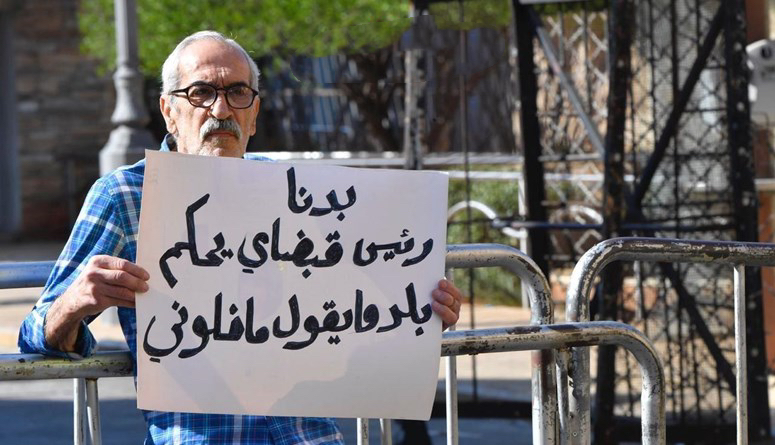 بدنا
رئيس قبضاي يحكم
بلد وما يقول ما خلوني